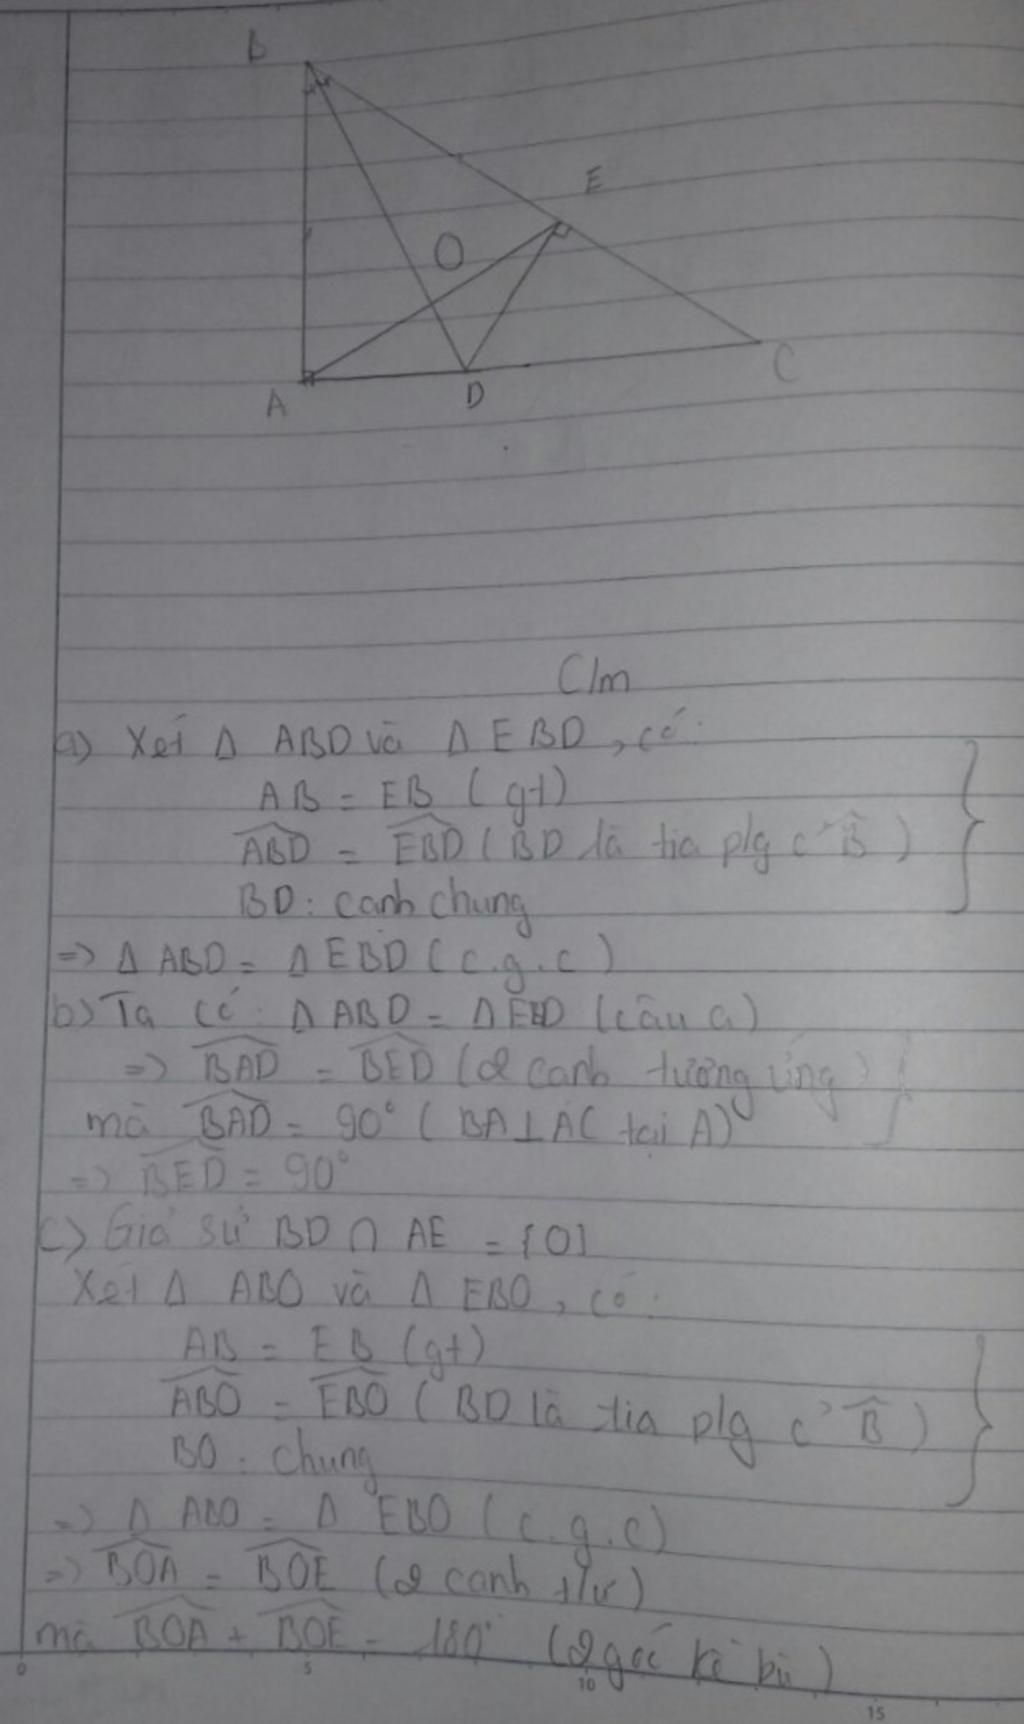 B
E
O
A
D
C
C/m
a) Xét Δ ABD và Δ EBD, có:
AB = EB (gt)
ABD = EBD (BD là tia p/g c' B)
BD: canh chung
=> Δ ABD = Δ EBD (c.g.c)
b) Ta có: Δ ABD = Δ EBD (câu a)
=> BAD = BED (2 canh tương ứng)
mà BAD = 90° (BA⊥AC tại A)
=> BED = 90°
c) Giả sử BD ∩ AE = {O}
Xét Δ ABO và Δ EBO, có:
AB = EB (gt)
ABO = EBO (BD là tia p/g c' B)
BO: chung
=> Δ ABO = Δ EBO (c.g.c)
=> BOA = BOE (2 canh t/ư)
mà BOA + BOE = 180° (2 góc kề bù)
0 5 10 15